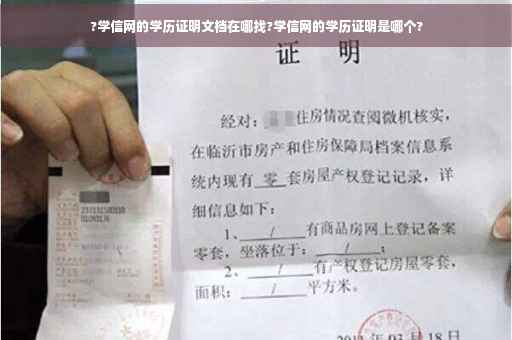 ?学信网的学历证明文档在哪找?学信网的学历证明是哪个?
证 明
经对: 住房情况查阅微机核实,
在临沂市房产和住房保障局档案信息系
统内现有 零 套房屋产权登记记录, 详
细信息如下:
1、 / 有商品房网上登记备案
零套, 坐落位于: / ;
2、 / 有产权登记房屋零套,
面积: / 平方米。
03 月 18 日